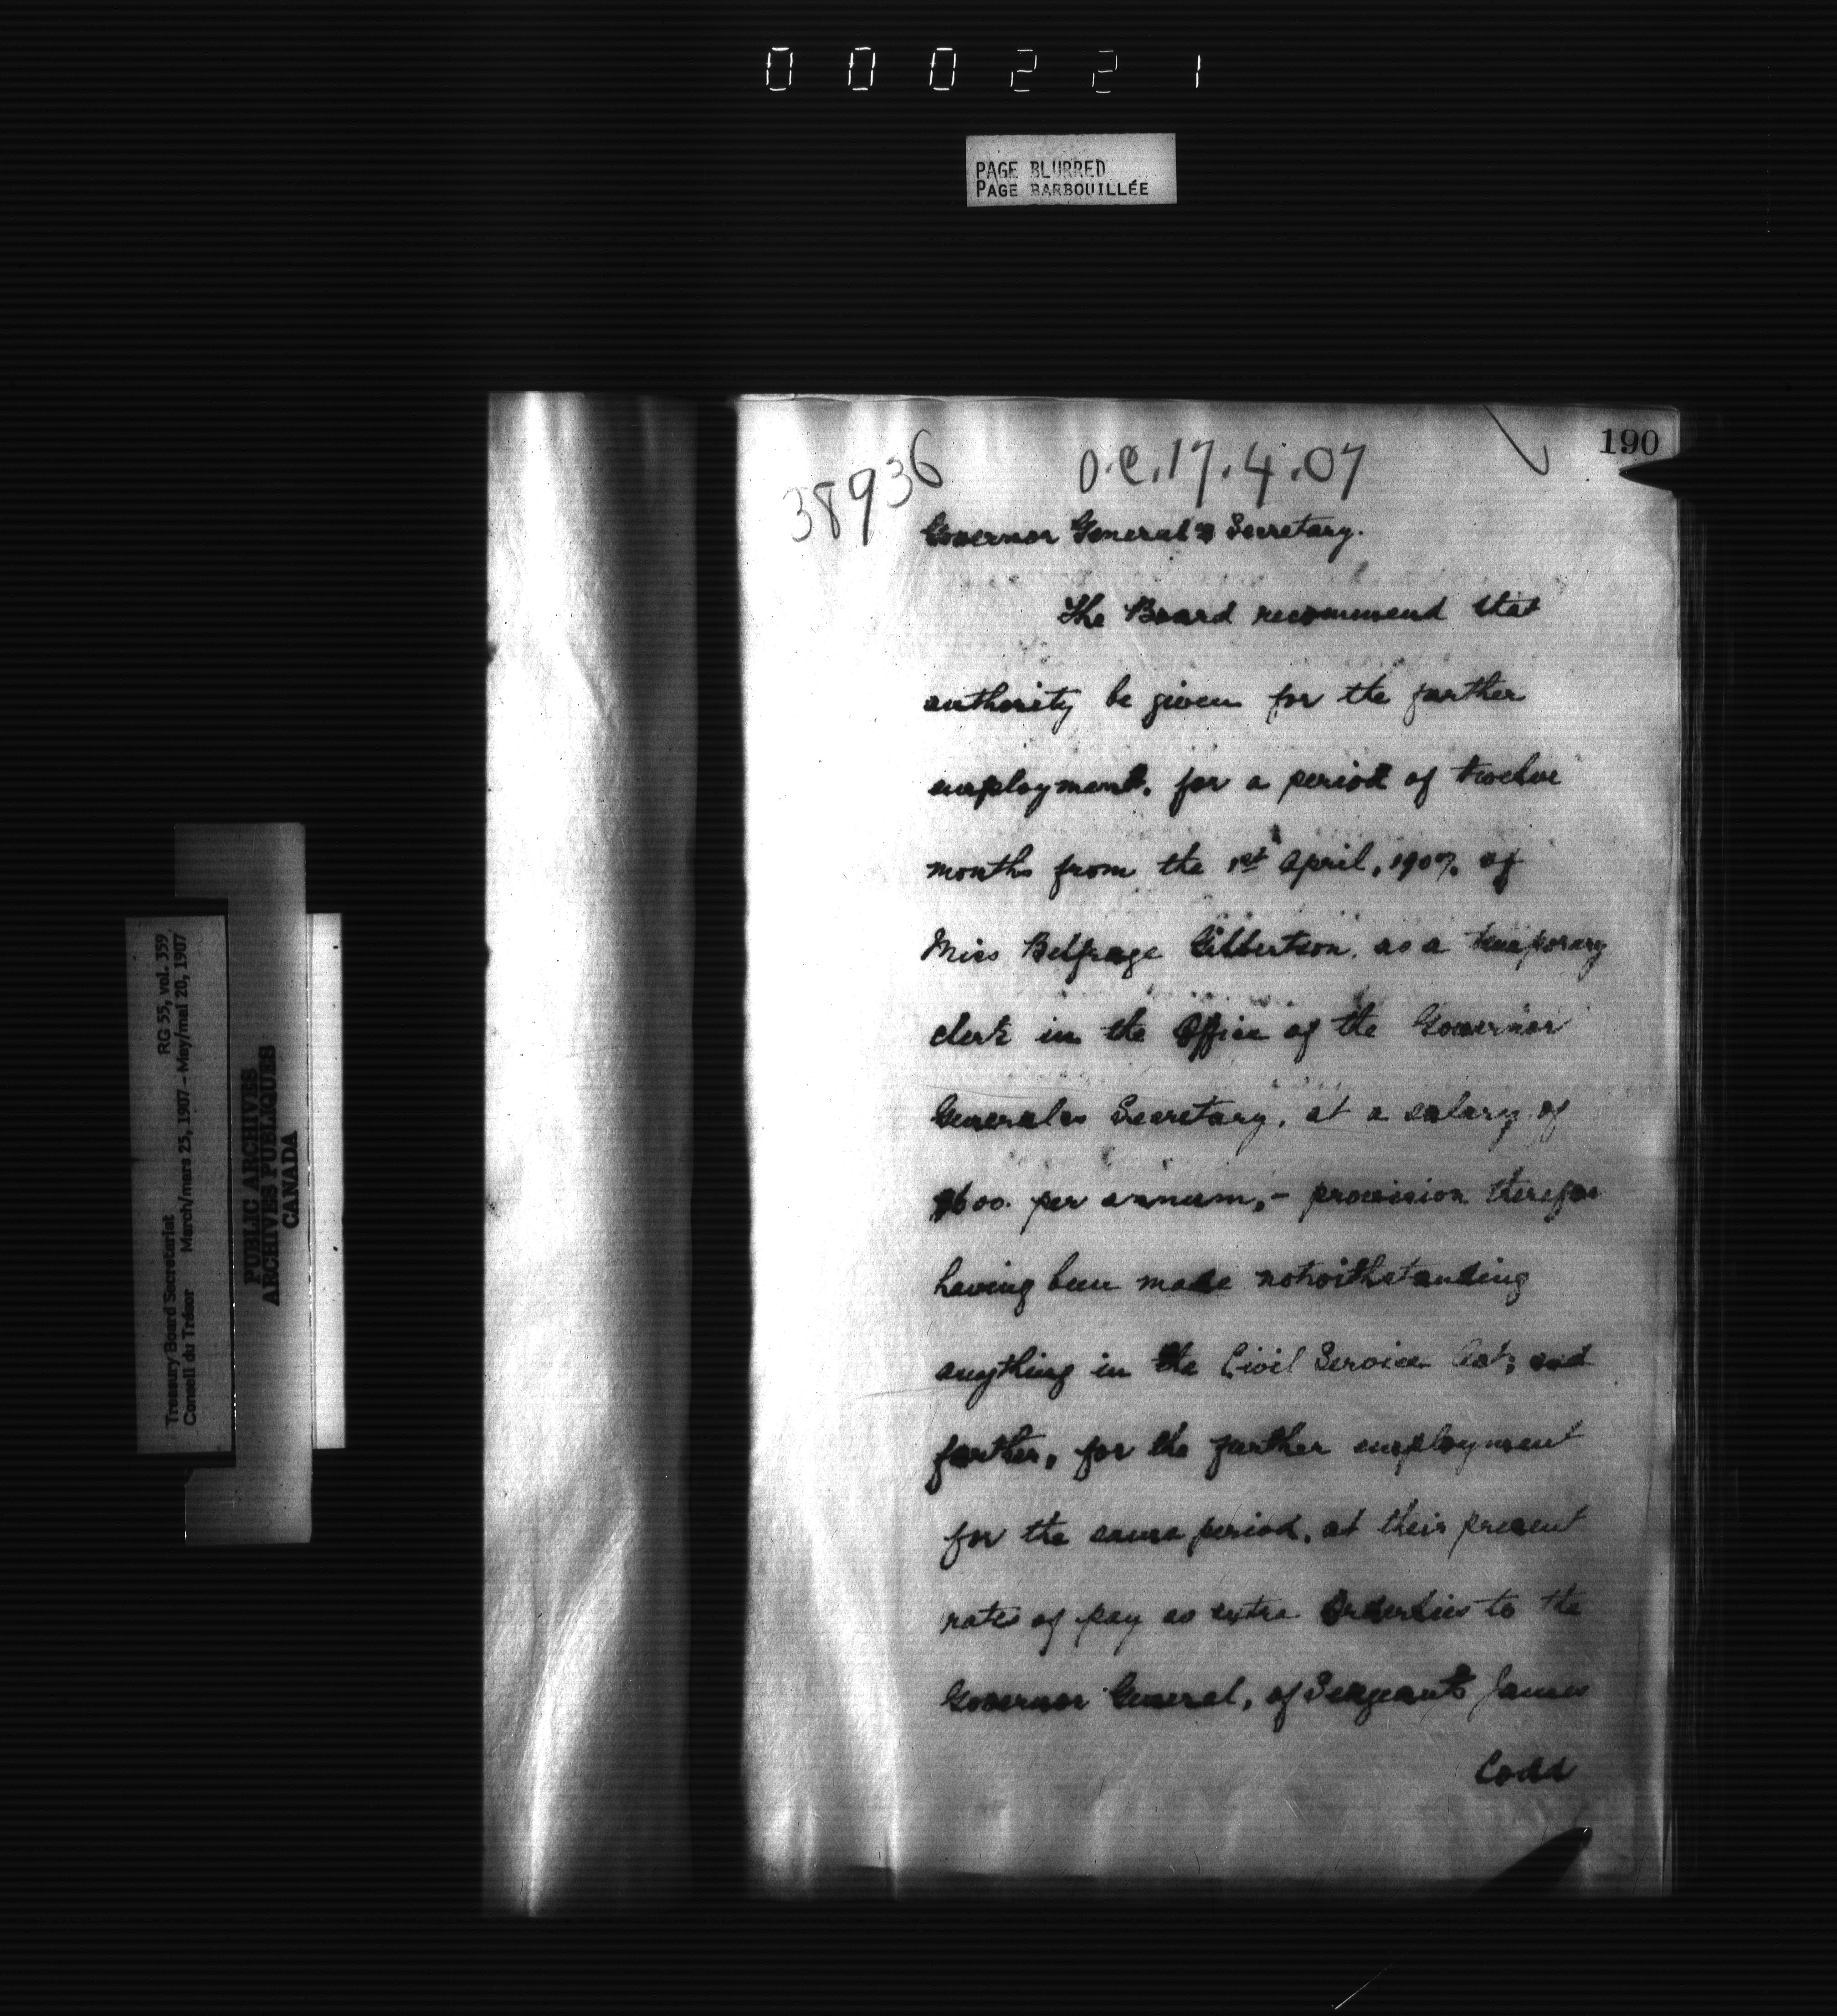 000221
PAGE BLURRED
PAGE BARBOUILLÉE
190
38936
O.C. 17.4.07
Governor General's Secretary.
The Board recommend that
authority be given for the further
employment, for a period of twelve
months from the 1st April, 1907, of
Miss Belfrage Gilbertson, as a temporary
clerk in the Office of the Governor
General's Secretary, at a salary of
$600. per annum, - provision therefor
having been made notwithstanding
anything in the Civil Service Act; and
further, for the further employment
for the same period, at their present
rates of pay as extra Orderlies to the
Governor General, of Sergeants James
Codd
Treasury Board Secretariat RG 55, vol. 359
Conseil du Trésor March/mars 25, 1907 – May/mai 20, 1907
PUBLIC ARCHIVES
ARCHIVES PUBLIQUES
CANADA